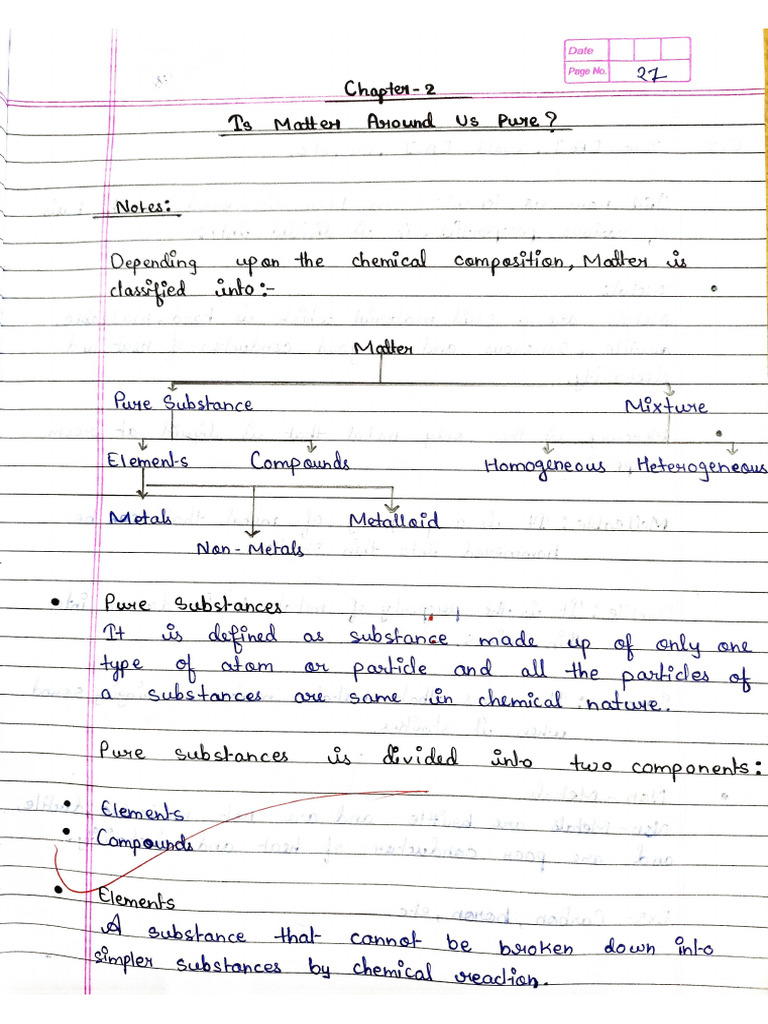 Date
Page No. 27
Chapter-2
Is Matter Around Us Pure?
Notes:
Depending upon the chemical composition, Matter is
classified into:-
Matter
Pure Substance Mixture
Elements Compounds Homogeneous, Heterogeneous
Metals Metalloid
Non-Metals
• Pure Substances
It is defined as substance made up of only one
type of atom or particle and all the particles of
a substances are same in chemical nature.
Pure substances is divided into two components:
• Elements
• Compounds
• Elements
A substance that cannot be broken down into
simpler substances by chemical reaction.